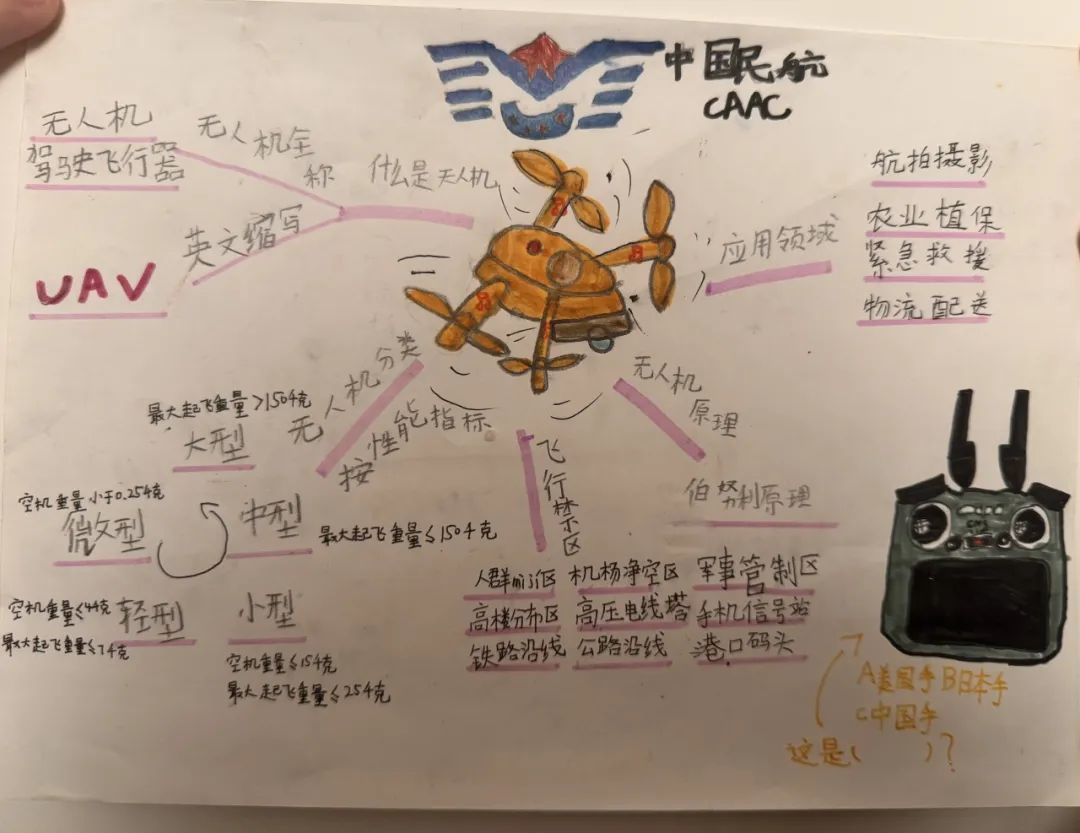 中国民航
CAAC
无人机
驾驶飞行器
无人机全称
什么是无人机
英文缩写
UAV
应用领域
航拍摄影
农业植保
紧急救援
物流配送
无人机分类
按性能指标
最大起飞重量>150千克
大型
空机重量小于0.25千克
微型
中型
最大起飞重量≤150千克
空机重量≤4千克
最大起飞重量≤7千克
轻型
小型
空机重量≤15千克
最大起飞重量≤25千克
飞行禁区
人群 区 机场净空区 军事管制区
高楼分布区 高压电线塔 手机信号站
铁路沿线 公路沿线 港口码头
无人机原理
伯努利原理
A美国手 B日本手
C中国手
这是( )?